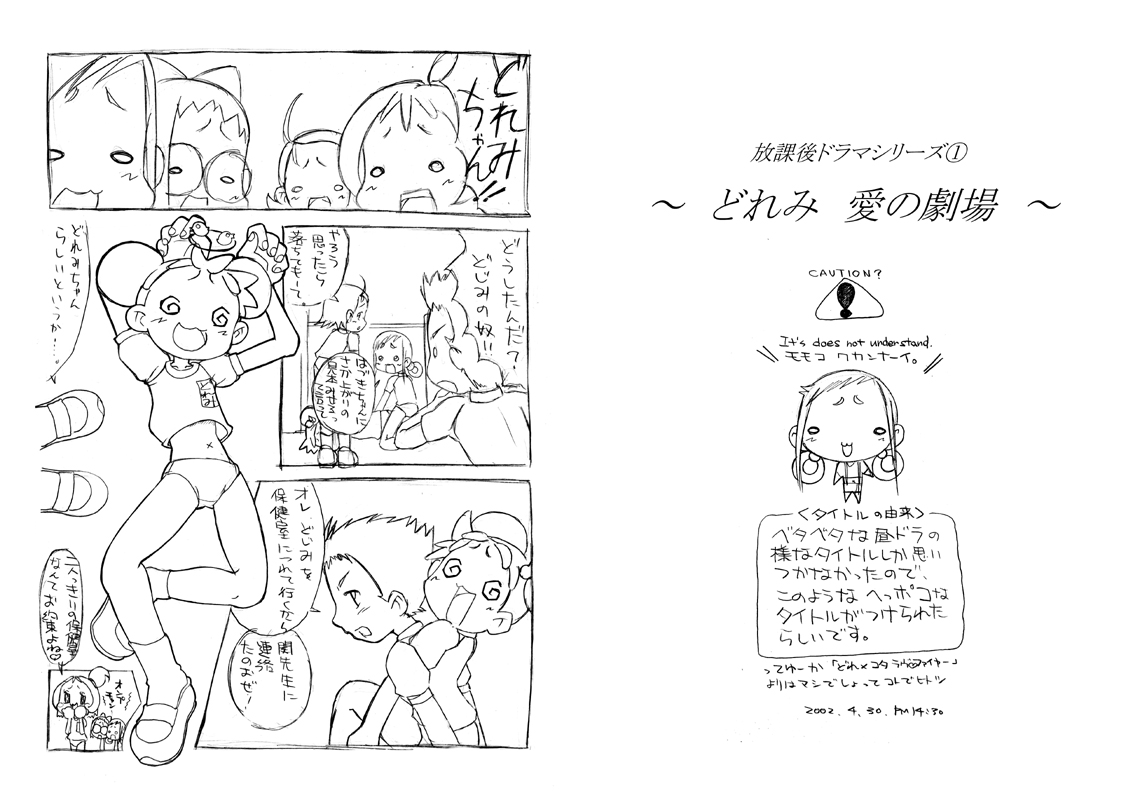 放課後ドラマシリーズ①
～ どれみ 愛の劇場 ～
CAUTION?
It's does not understand.
モモコ ワカンナーイ。
<タイトルの由来>
ベタベタな昼ドラの
様なタイトルしか思い
つかなかったので、
このような ヘッポコな
タイトルがつけられた
らしいです。
ってゆーか「どれ×コタ ラヴファイヤー」
よりはマシでしょって コトでヒトツ
2002. 4. 30. PM 14:30
どれみ
ちゃん!!
どうしたんだ?
どじみの奴!!
やろう
思ったら
落ちてもーて。
はづきちゃんに
さか上がりの
見本みせるっ
て言って
どれみちゃん
らしいというか…。
オレ、どじみを
保健室につれて行くから
関先生に
連絡
たのむぜ!
二人っきりの保健室
なんてお約束よね♡